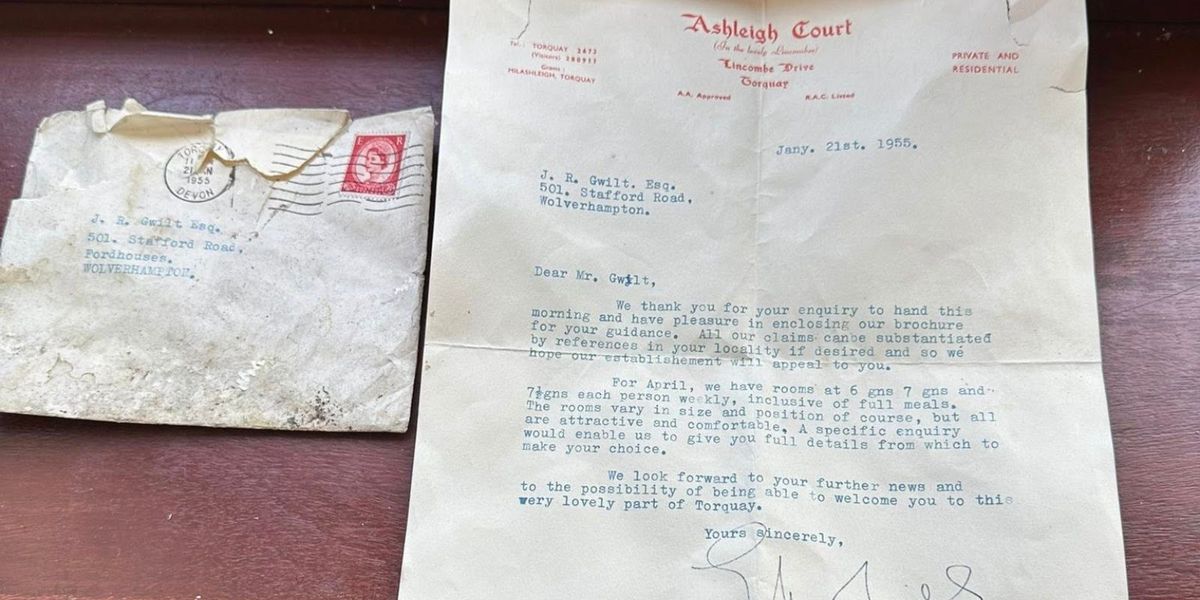 TORQUAY
21 JAN
1955
DEVON
E R
J. R. Gwilt Esq.
501. Stafford Road,
Fordhouses.
WOLVERHAMPTON.
Ashleigh Court
(In the lovely Lincombes)
Lincombe Drive
Torquay
A.A. Approved R.A.C. Listed
Tel.: TORQUAY 2673
(Visitors)
Grams:
MILASHLEIGH, TORQUAY
PRIVATE AND
RESIDENTIAL
Jany. 21st. 1955.
J. R. Gwilt. Esq.
501. Stafford Road,
Wolverhampton.
Dear Mr. Gwilt,
We thank you for your enquiry to hand this
morning and have pleasure in enclosing our brochure
for your guidance. All our claims canbe substantiated
by references in your locality if desired and so we
hope our establishement will appeal to you.
For April, we have rooms at 6 gns 7 gns and
7½gns each person weekly, inclusive of full meals.
The rooms vary in size and position of course, but all
are attractive and comfortable, A specific enquiry
would enable us to give you full details from which to
make your choice.
We look forward to your further news and
to the possibility of being able to welcome you to this
very lovely part of Torquay.
Yours sincerely,